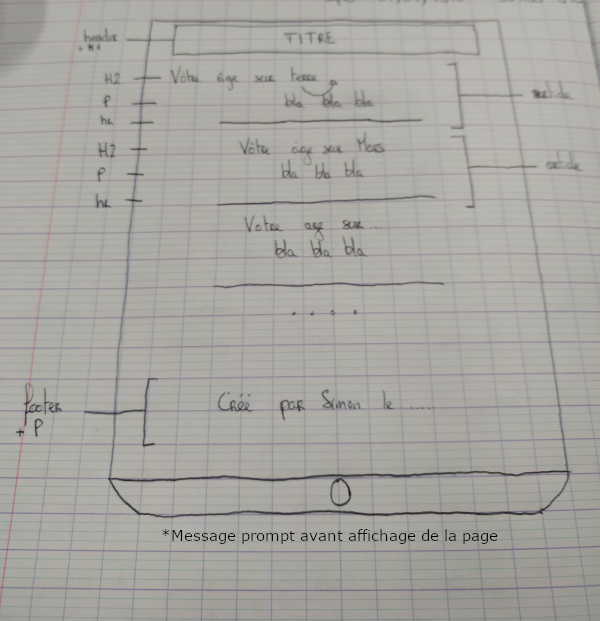 header
+ H1
TITRE
H2
Vôtre âge sur terre
P
bla bla bla
hr
article
H2
Vôtre âge sur Mars
P
bla bla bla
hr
article
Votre age sur...
bla bla bla
. . . .
footer
+ P
Créé par Simon le .....
*Message prompt avant affichage de la page